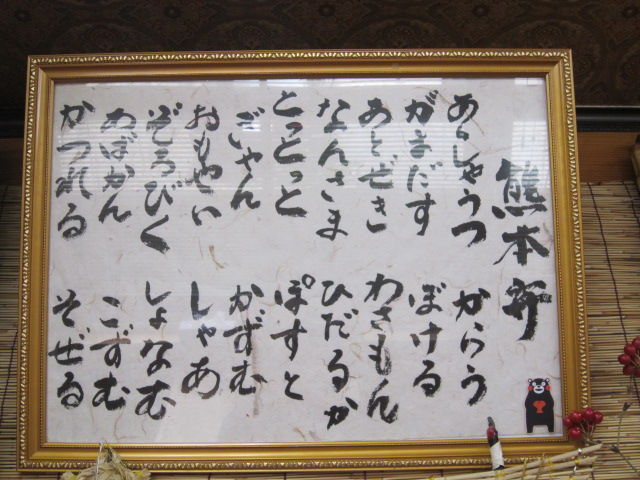 熊本弁
あくしゃうつ
がまだす
あとぜき
なんさま
とっとっと
ぎゃん
おもやい
ぞろびく
あばかん
かつれる
からう
ぼける
わさもん
ひだるか
ぽすと
かずむ
しゃあ
しょなむ
こずむ
そぜる